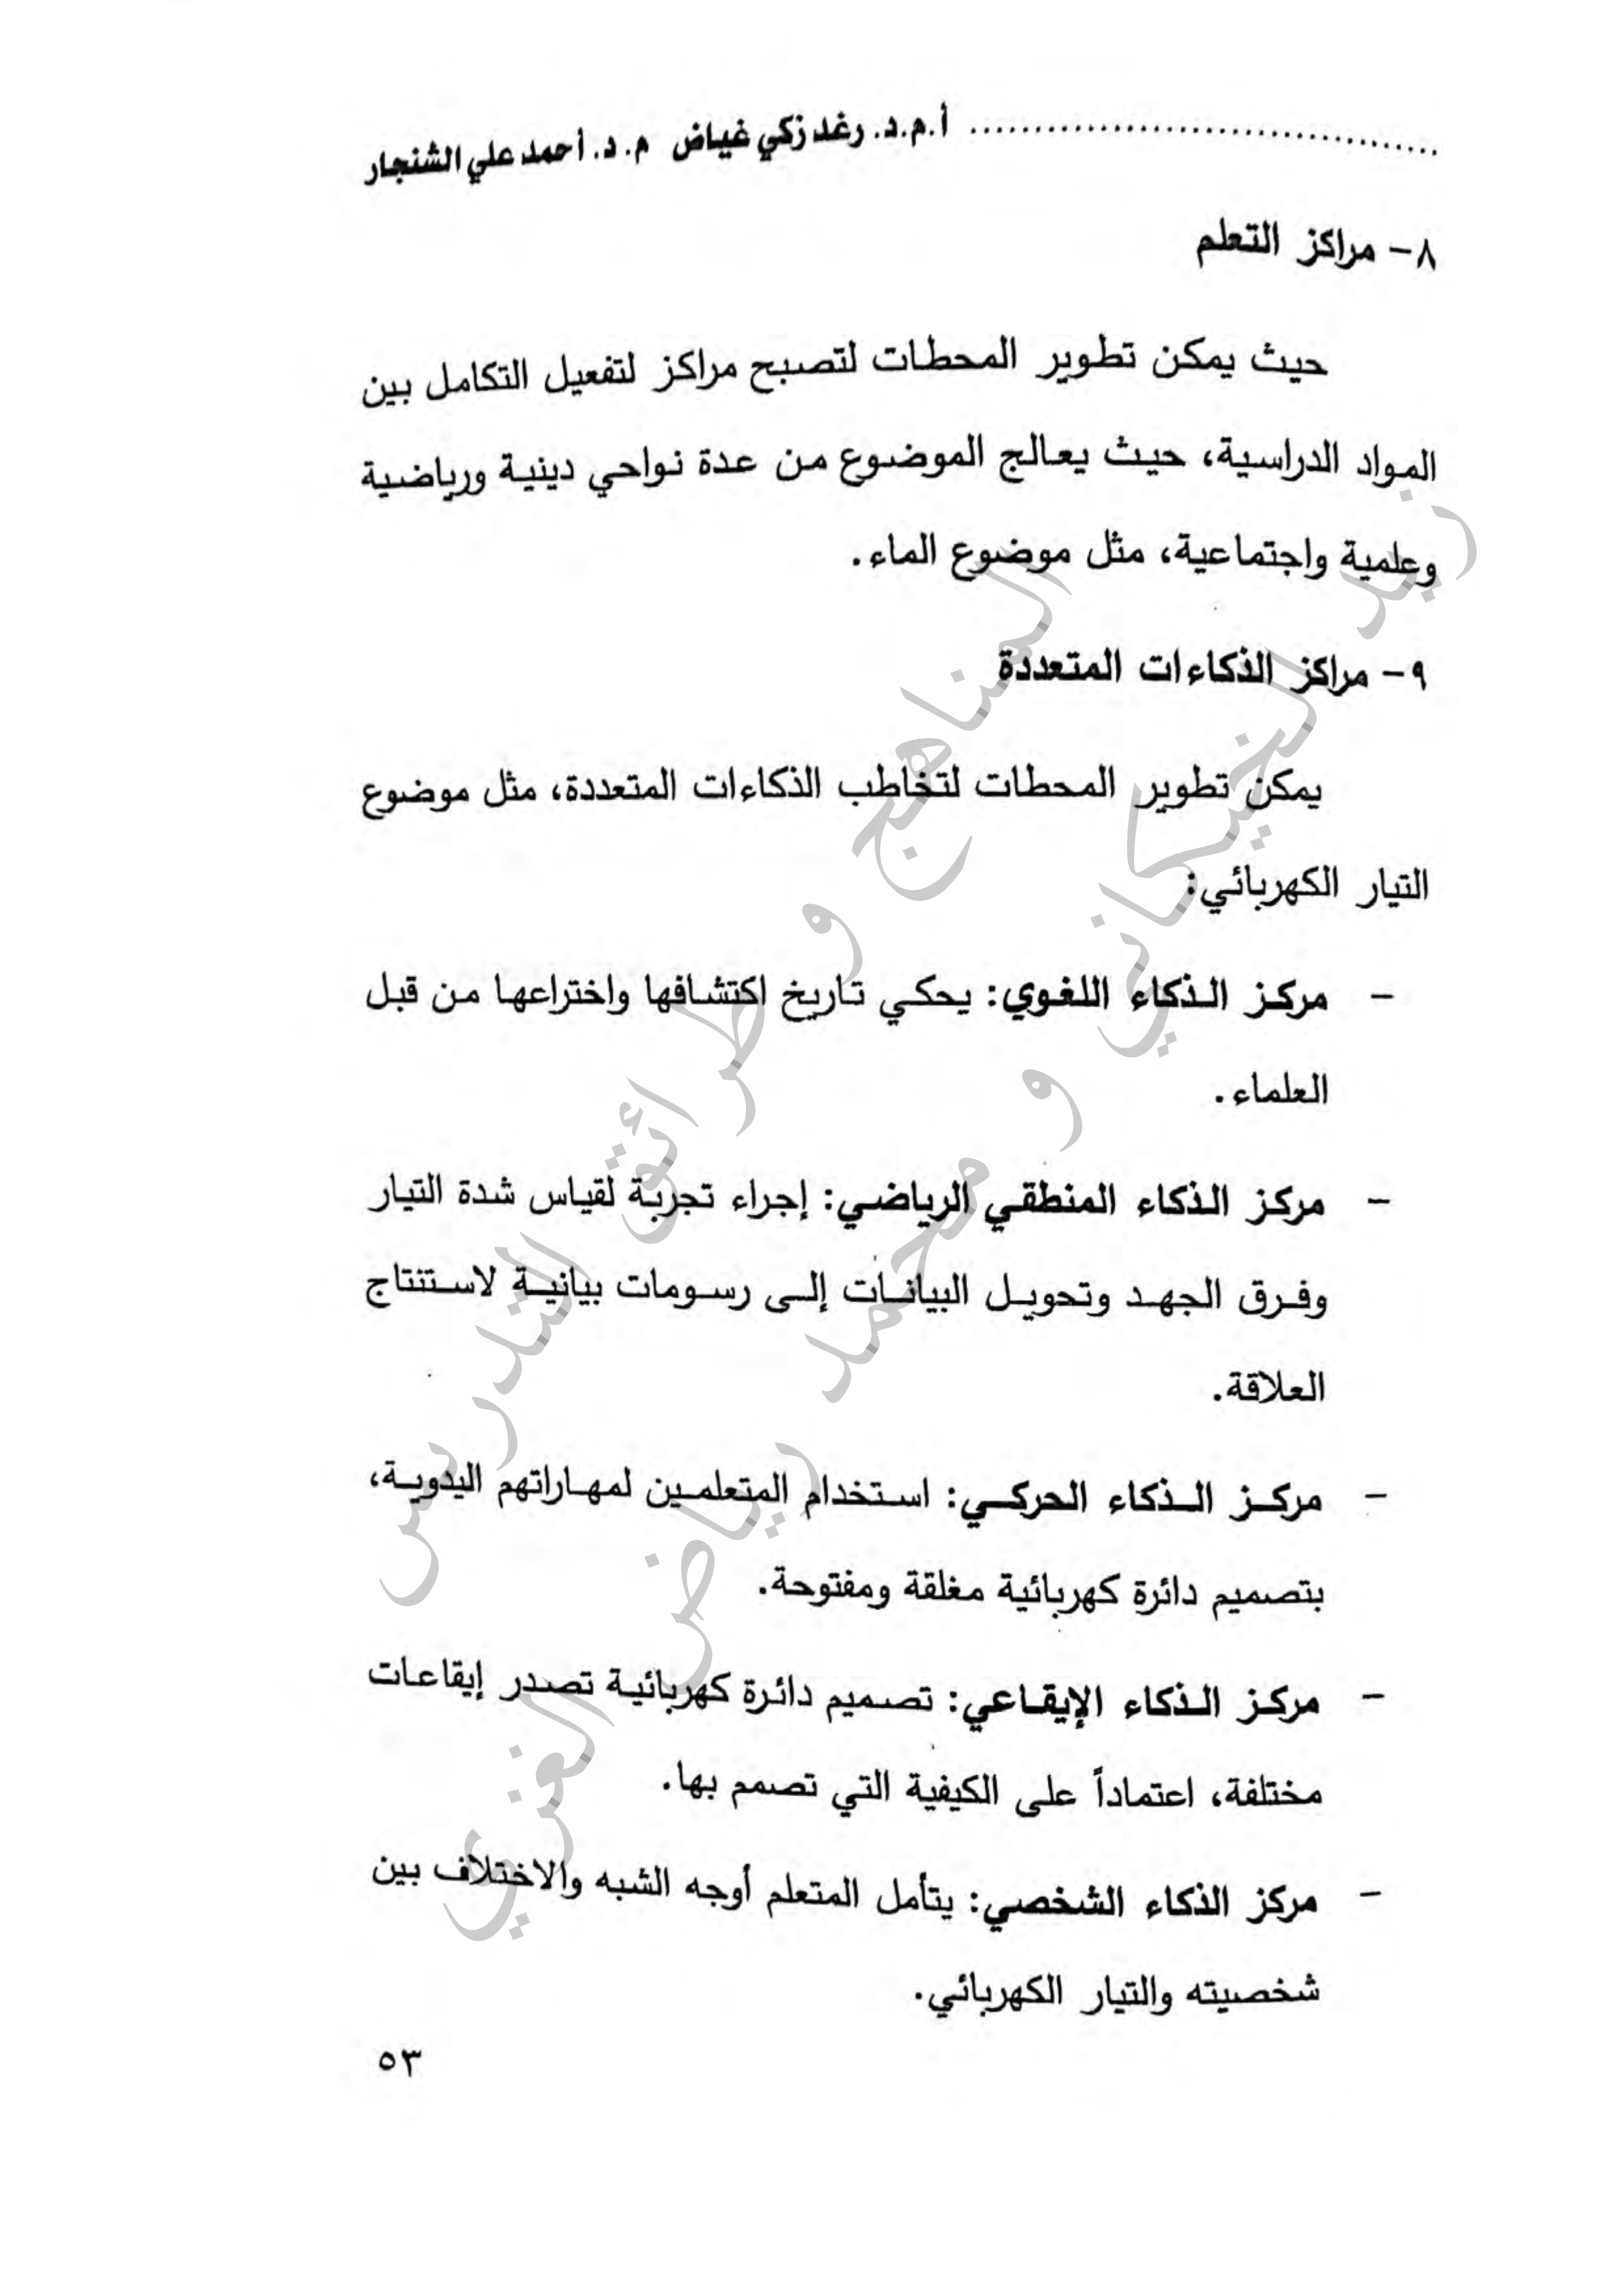 أ.م.د. رغد زكي غياض م. د. أحمد علي الشنجار
٨- مراكز التعلم
حيث يمكن تطوير المحطات لتصبح مراكز لتفعيل التكامل بين
المواد الدراسية، حيث يعالج الموضوع من عدة نواحي دينية ورياضية
وعلمية واجتماعية، مثل موضوع الماء.
٩- مراكز الذكاءات المتعددة
يمكن تطوير المحطات لتخاطب الذكاءات المتعددة، مثل موضوع
التيار الكهربائي:
- مركز الذكاء اللغوي: يحكي تاريخ اكتشافها واختراعها من قبل
العلماء.
- مركز الذكاء المنطقي الرياضي: إجراء تجربة لقياس شدة التيار
وفرق الجهد وتحويل البيانات إلى رسومات بيانية لاستنتاج
العلاقة.
- مركز الذكاء الحركي: استخدام المتعلمين لمهاراتهم اليدوية،
بتصميم دائرة كهربائية مغلقة ومفتوحة.
- مركز الذكاء الإيقاعي: تصميم دائرة كهربائية تصدر إيقاعات
مختلفة، اعتماداً على الكيفية التي تصمم بها.
- مركز الذكاء الشخصي: يتأمل المتعلم أوجه الشبه والاختلاف بين
شخصيته والتيار الكهربائي.
٥٣
المناهج و طرائق التدريس
زيد الخيكاني و محمد رياض الغزي